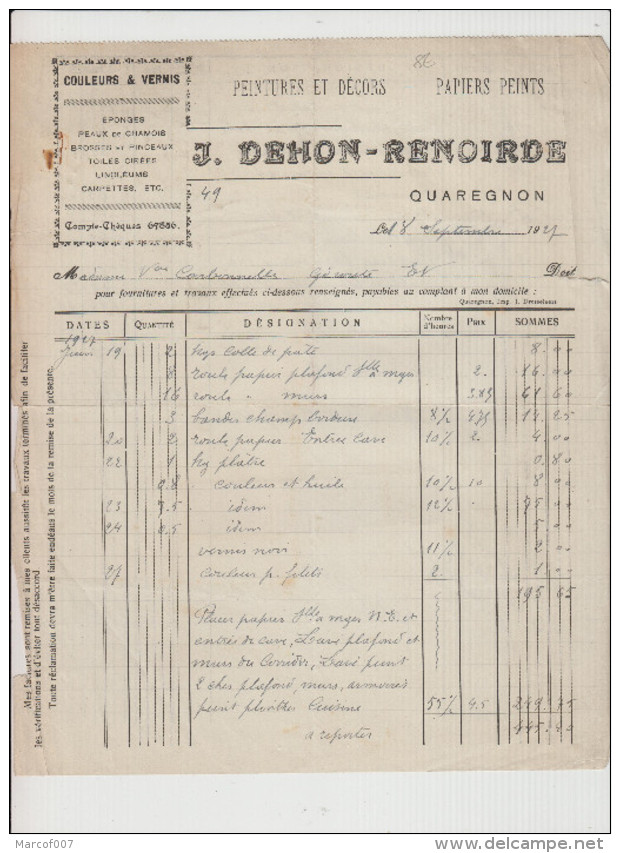 COULEURS & VERNIS
ÉPONGES
PEAUX DE CHAMOIS
BROSSES ET PINCEAUX
TOILES CIRÉES
LINOLEUMS
CARPETTES, ETC.
Compte-Chèques 67886.
PEINTURES ET DÉCORS PAPIERS PEINTS
J. DEHON-RENOIRDE
49
QUAREGNON
Le 8 Septembre 1927
Madame Vve Doit
pour fournitures et travaux effectués ci-dessous renseignés, payables au comptant à mon domicile :
Quaregnon, Imp.
DATES QUANTITÉ DÉSIGNATION Nombre d'heures Prix SOMMES
1927
19 2 kgs colle de pate 8.00
8 roule papier plafond Slle à mger 2. 16.00
16 roule " murs 3.85 61.60
3 bandes champ bordure 475 14.25
20 2 roule papier Entrée cave 10½ 2. 4.00
22 1 kg plâtre 0.80
0.8 couleur et huile 10½ 10 8.00
23 7.5 idem 12½ 75.00
24 0.5 idem 5.00
vernis noir 11½ 2.00
27 couleur p. filets 2. 1.00
195 65
Placer papier Slle à mger et
entrée de cave, Lavé plafond et
murs du Corridor, Lavé peint
plafond, murs, armoires
peint Cuisine 55½ 4.5 249.75
à reporter 445.40
Mes factures sont remises à mes clients aussitôt les travaux terminés afin de faciliter
les vérifications et d'éviter tout désaccord.
Toute réclamation devra m'être faite endéans le mois de la remise de la présente.
Marcof007
delcampe.net